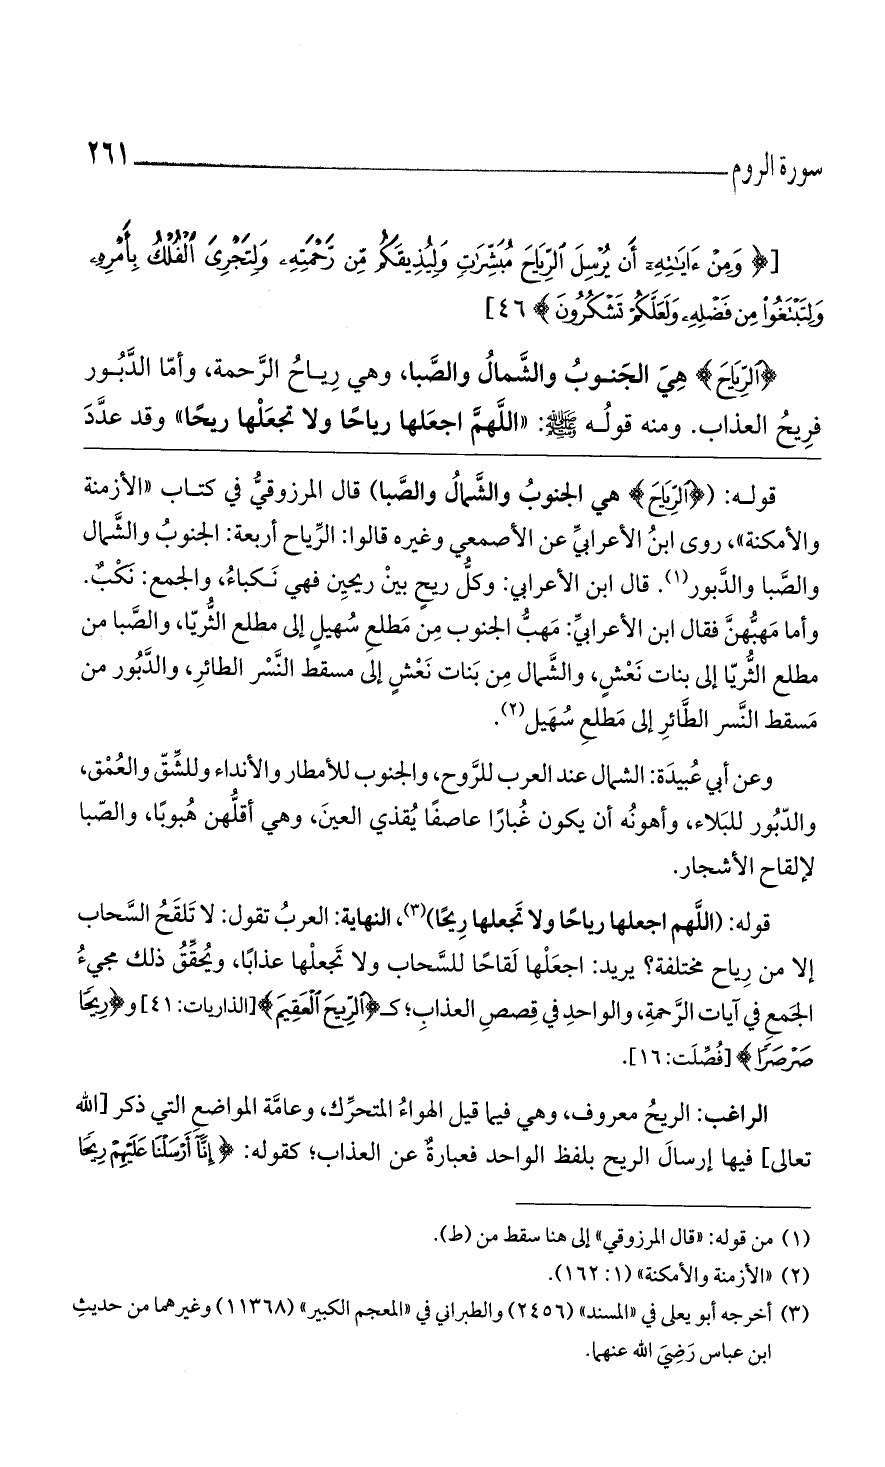 سورة الروم ٢٦١
[﴿ وَمِنْ ءَايَٰتِهِۦٓ أَن يُرْسِلَ ٱلرِّيَاحَ مُبَشِّرَٰتٍ وَلِيُذِيقَكُم مِّن رَّحْمَتِهِۦ وَلِتَجْرِىَ ٱلْفُلْكُ بِأَمْرِهِۦ
وَلِتَبْتَغُوا۟ مِن فَضْلِهِۦ وَلَعَلَّكُمْ تَشْكُرُونَ ﴾ ٤٦]
﴿ٱلرِّيَاحَ﴾ هِيَ الجَنـوبُ والشَّمالُ والصَّبا، وهي رِيـاحُ الرَّحمة، وأمّا الدَّبُـور
فرِيحُ العذاب. ومنه قولُـه ﷺ: «اللَّهمَّ اجعَلها رياحًا ولا تجعَلْها ريحًا» وقد عدَّدَ
قولـه: (﴿ٱلرِّيَاحَ﴾ هي الجنوبُ والشَّمالُ والصَّبا) قال المرزوقيُّ في كتـاب «الأزمنة
والأمكنة»، روى ابنُ الأعرابيِّ عن الأصمعي وغيره قالوا: الرِّياح أربعة: الجنوبُ والشَّمال
والصَّبا والدَّبور(١). قال ابن الأعرابي: وكلُّ ريحٍ بينْ ريحيِن فهي نَـكباءُ، والجمع: نَكْبٌ.
وأما مَهبُّهنَّ فقال ابن الأعرابيِّ: مَهبُّ الجنوب مِن مَطلعِ سُهيلٍ إلى مطلع الثُّريّا، والصَّبا من
مطلع الثُّريّا إلى بنات نَعْشٍ، والشَّمال مِن بَنات نَعْشٍ إلى مسقط النَّسْر الطائرِ، والدَّبُور من
مَسقط النَّسر الطَّائرِ إلى مَطلعِ سُهَيل(٢).
وعن أبي عُبيدَة: الشمال عند العرب للرَّوح، والجنوب للأمطار والأنداء وللشِّقِّ والعُمْق،
والدّبُور للبَلاء، وأهونُه أن يكون غُبارًا عاصفًا يُقذي العينَ، وهي أقلُّهن هُبوبًا، والصّبا
لإلقاح الأشجار.
قوله: (اللَّهم اجعلها رياحًا ولا تَجعلها رِيحًا)(٣)، النهاية: العربُ تقول: لا تَلقَحُ السَّحاب
إلا من رِياح مختلفة؟ يريد: اجعَلْها لَقاحًا للسَّحاب ولا تَجعلْها عذابًا، ويُحقِّقُ ذلك مجيءُ
الجَمع في آيات الرَّحمةِ، والواحدِ في قِصصِ العذابِ؛ كـ﴿ٱلرِّيحَ ٱلْعَقِيمَ﴾[الذاريات: ٤١] و﴿رِيحًا
صَرْصَرًا﴾ [فُصِّلَت: ١٦].
الراغب: الريحُ معروف، وهي فيما قيل الهواءُ المتحرِّك، وعامَّة المواضعِ التي ذكر [الله
تعالى] فيها إرسالَ الريح بلفظ الواحد فعبارةٌ عن العذاب؛ كقوله: ﴿إِنَّآ أَرْسَلْنَا عَلَيْهِمْ رِيحًا
(١) من قوله: «قال المرزوقي» إلى هنا سقط من (ط).
(٢) «الأزمنة والأمكنة» (١: ١٦٢).
(٣) أخرجه أبو يعلى في «المسند» (٢٤٥٦) والطبراني في «المعجم الكبير» (١١٣٦٨) وغيرهما من حديثِ
ابن عباس رَضِيَ الله عنهما.